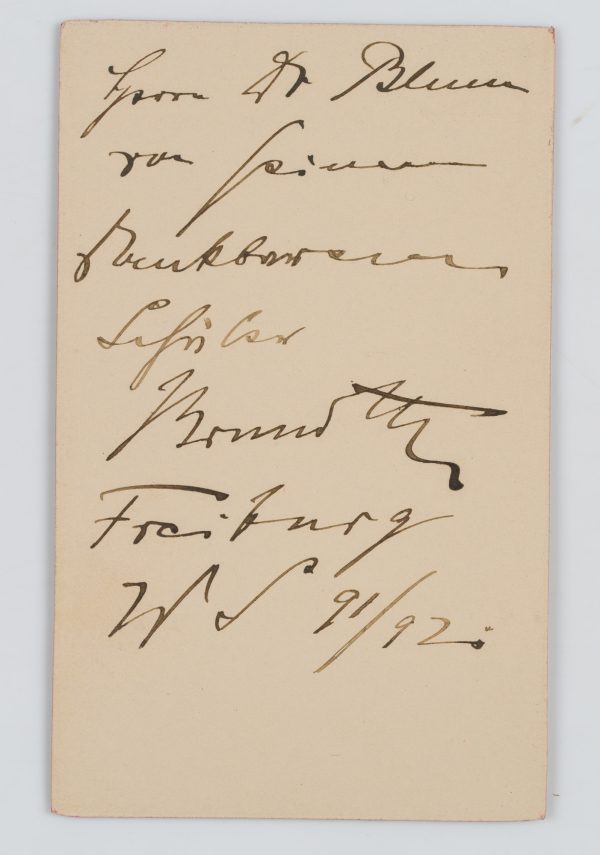 Herrn Dr Blum
von seinem
dankbaren
Schüler
Brandt
Freiburg
WS 91/92.